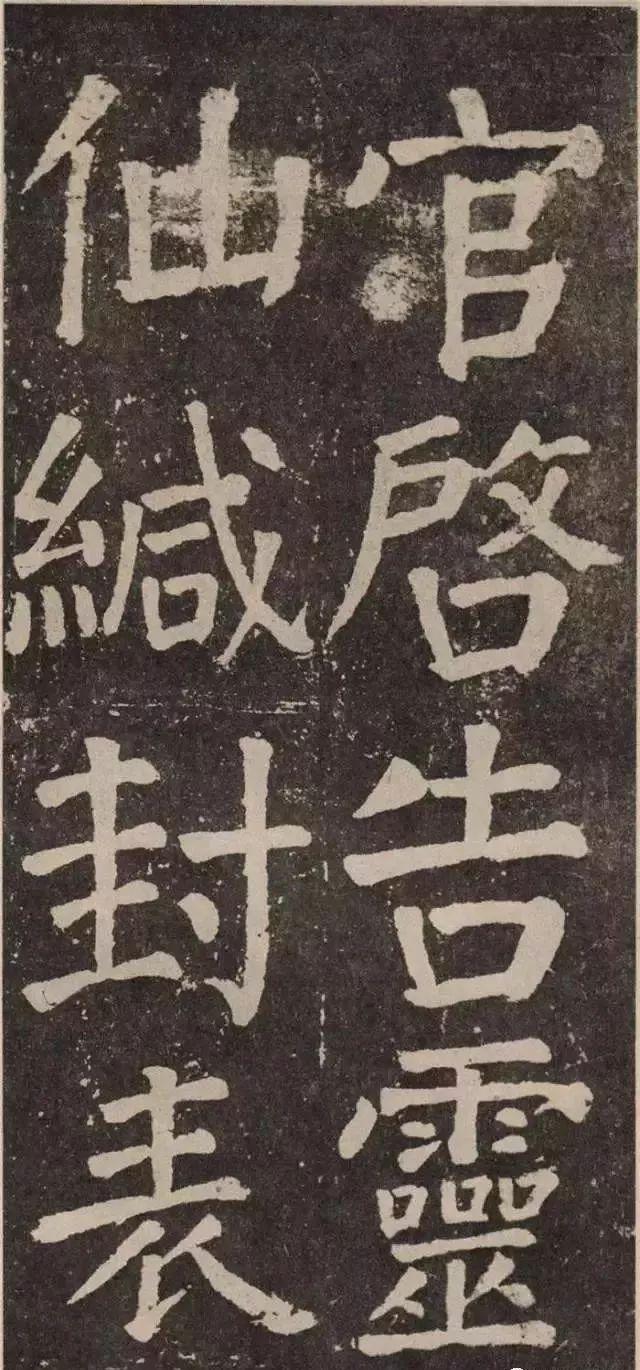 官啓告靈
仙緘封表